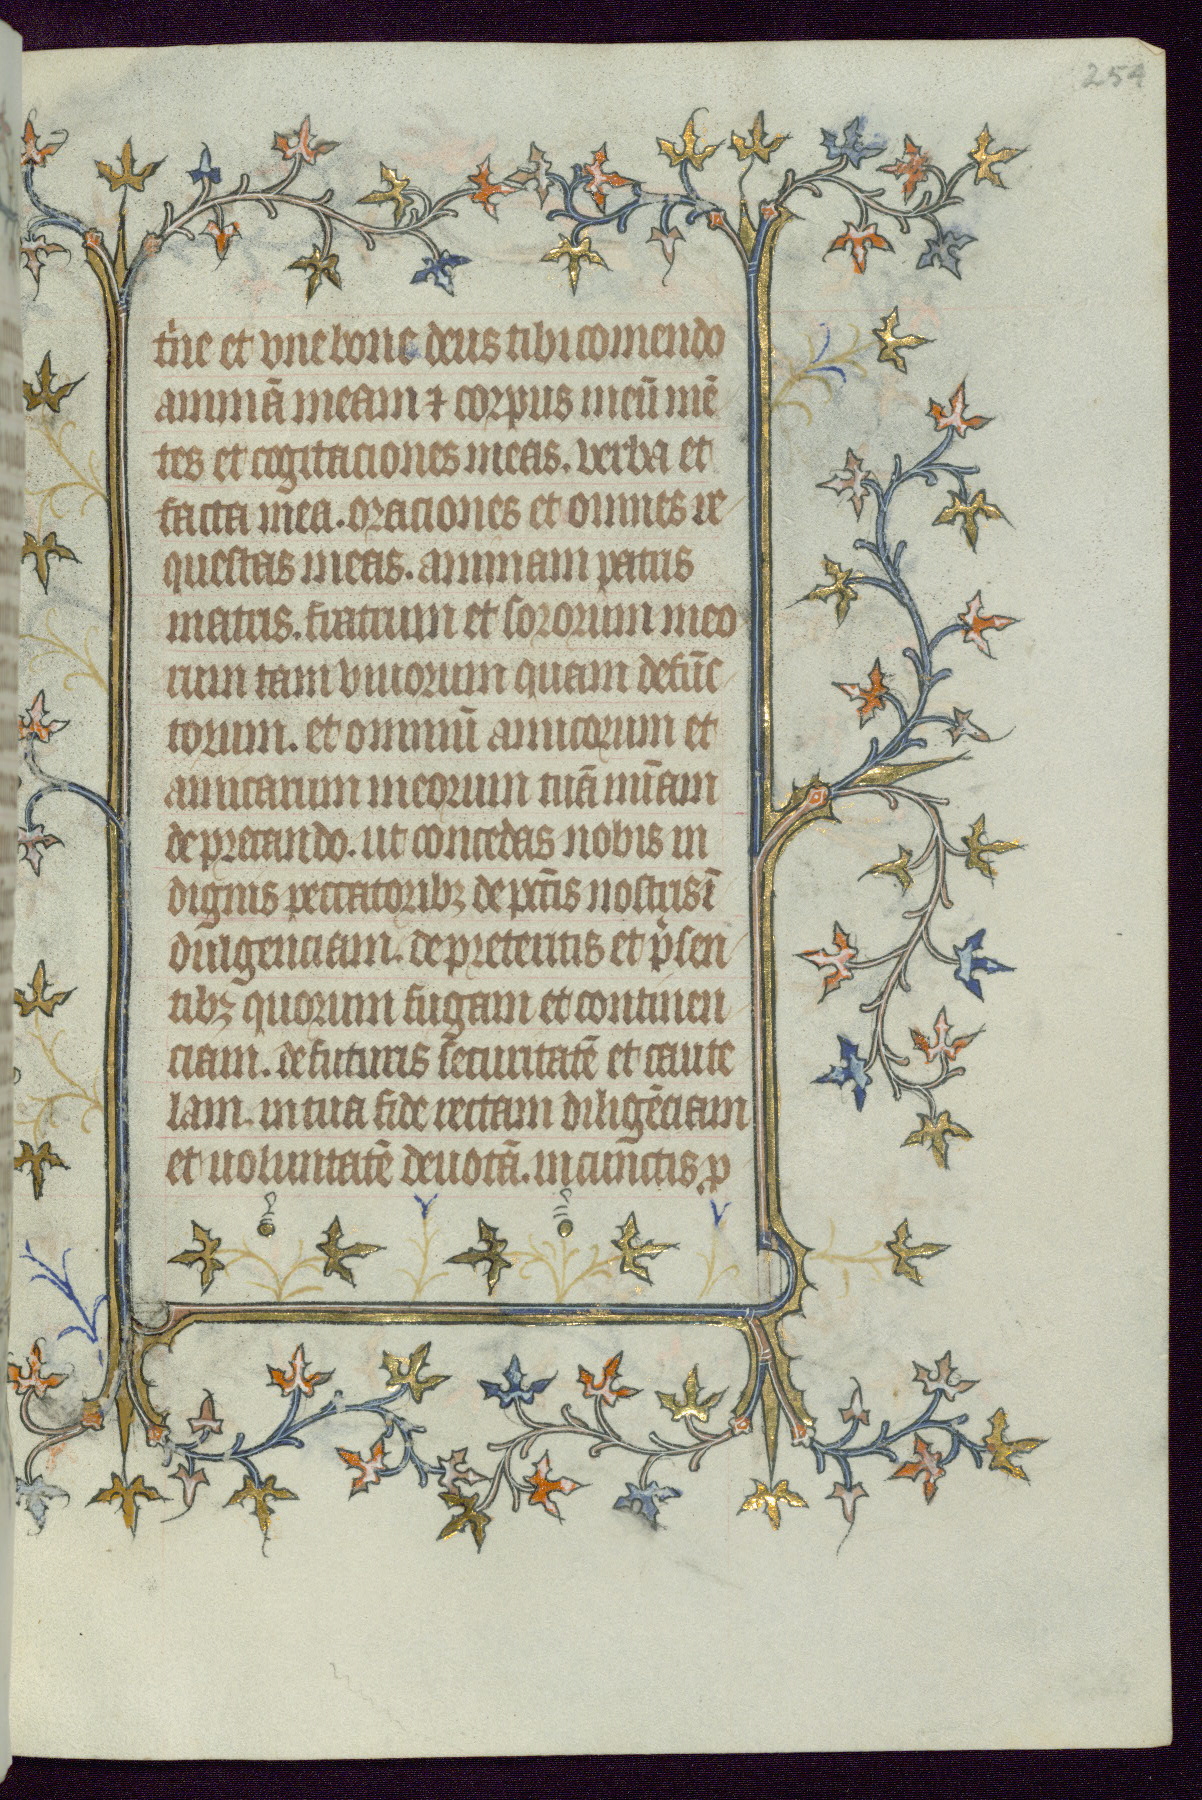 254
t̓ne et vne bone deus tibi comendo
animā meam ⁊ corpus meū mē
tes et cogitaciones meas. verba et
facta mea. oraciones et omnes re
questas meas. animam patris
matris. fratrum et sororum meo
rum tam viuorum quam defūc
torum. et omniū amicorum et
amicarum meorum tuā mīam
deprecando. ut concedas nobis in
dignis peccatoribꝫ de pctīs nostris ī
dulgenciam. de preteritis et p̓sen
tibꝫ quorum fugam et continen
ciam. de futuris securitatē et caute
lam. in tua fide rectam diligēciam
et uoluntatē deuotā. in cunctis p